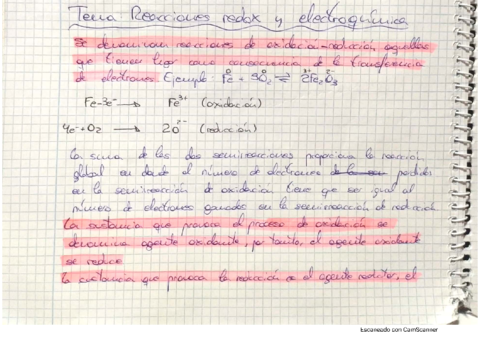 Tema Reacciones redox y electroquímica
Se denominan reacciones de oxidación-reducción aquellas
que tienen lugar como consecuencia de la transferencia
de electrones. Ejemplo: Fe⁰ + 3O₂⁰ ⇌ 2Fe₂O₃
Fe-3e⁻ → Fe³⁺ (oxidación)
4e⁻+O₂ → 2O²⁻ (reducción)
La suma de las dos semirreacciones proporciona la reacción
global en donde el número de electrones perdidos
en la semirreacción de oxidación tiene que ser igual al
número de electrones ganados en la semirreacción de reducción
La sustancia que provoca el proceso de oxidación se
denomina agente oxidante, por tanto, el agente oxidante
se reduce
La sustancia que provoca la reacción es el agente reductor, el
Escaneado con CamScanner